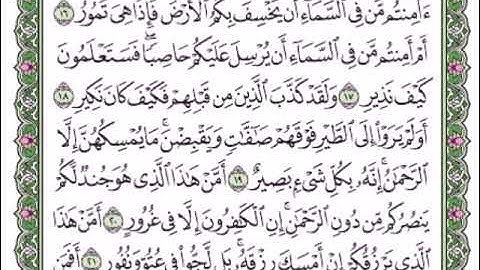 ءَأَمِنتُم مَّن فِى ٱلسَّمَآءِ أَن يَخْسِفَ بِكُمُ ٱلْأَرْضَ فَإِذَا هِىَ تَمُورُ ١٦
أَمْ أَمِنتُم مَّن فِى ٱلسَّمَآءِ أَن يُرْسِلَ عَلَيْكُمْ حَاصِبًا ۖ فَسَتَعْلَمُونَ
كَيْفَ نَذِيرِ ١٧ وَلَقَدْ كَذَّبَ ٱلَّذِينَ مِن قَبْلِهِمْ فَكَيْفَ كَانَ نَكِيرِ ١٨
أَوَلَمْ يَرَوْا۟ إِلَى ٱلطَّيْرِ فَوْقَهُمْ صَـٰٓفَّـٰتٍ وَيَقْبِضْنَ ۚ مَا يُمْسِكُهُنَّ إِلَّا
ٱلرَّحْمَـٰنُ ۚ إِنَّهُۥ بِكُلِّ شَىْءٍۭ بَصِيرٌ ١٩ أَمَّنْ هَـٰذَا ٱلَّذِى هُوَ جُندٌ لَّكُمْ
يَنصُرُكُم مِّن دُونِ ٱلرَّحْمَـٰنِ ۚ إِنِ ٱلْكَـٰفِرُونَ إِلَّا فِى غُرُورٍ ٢٠ أَمَّنْ هَـٰذَا
ٱلَّذِى يَرْزُقُكُمْ إِنْ أَمْسَكَ رِزْقَهُۥ ۚ بَل لَّجُّوا۟ فِى عُتُوٍّ وَنُفُورٍ ٢١ أَفَمَن